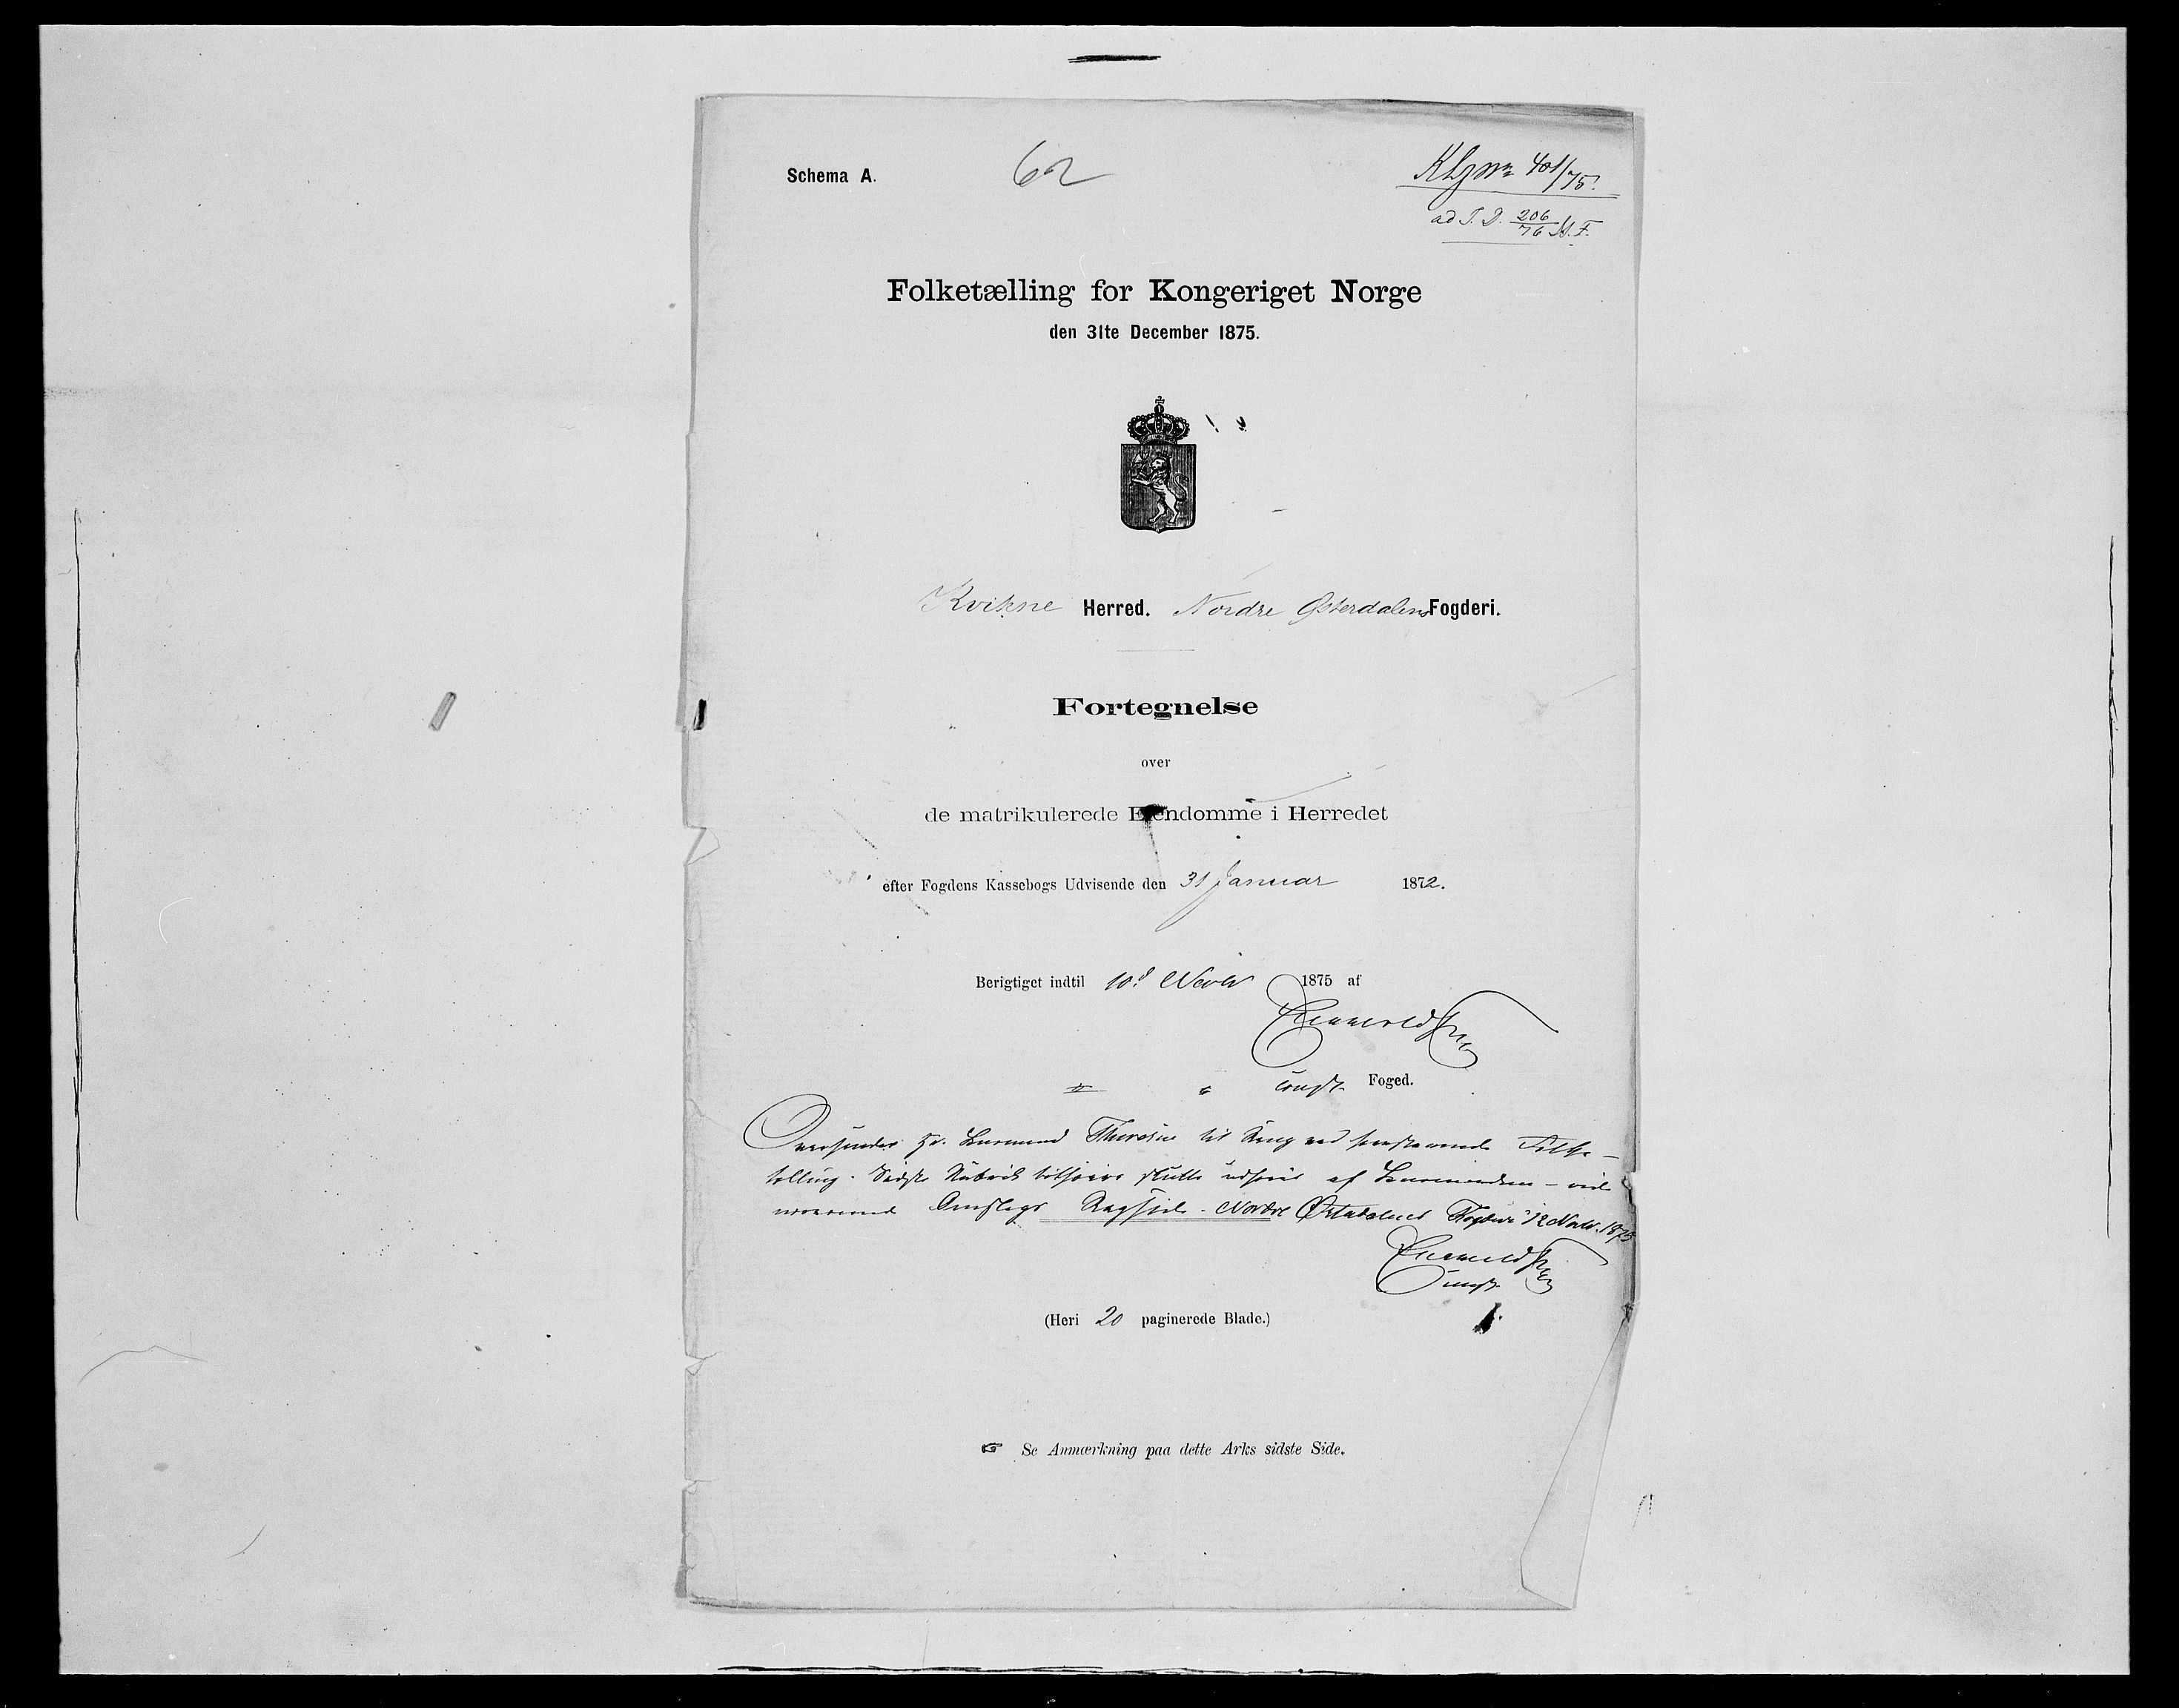 Schema A.
62
401/75.
ad J. D. 206/76 M. F.
Folketælling for Kongeriget Norge
den 31te December 1875.
Kvikne Herred. Nordre Østerdalens Fogderi.
Fortegnelse
over
de matrikulerede Eiendomme i Herredet
efter Fogdens Kassebogs Udvisende den 31 Januar 1872.
Berigtiget indtil 10d Novbr 1875 af
const. Foged.
Oversendes Hr. Lensmand til Brug ved forestaaende Folke-
tælling. Sidste Rubrik bliver udført af Lensmanden - vide
Omslags Bagside. Nordre Østerdalens Fogderi 12 Novbr. 1875
const.
(Heri 20 paginerede Blade.)
☞ Se Anmærkning paa dette Arks sidste Side.